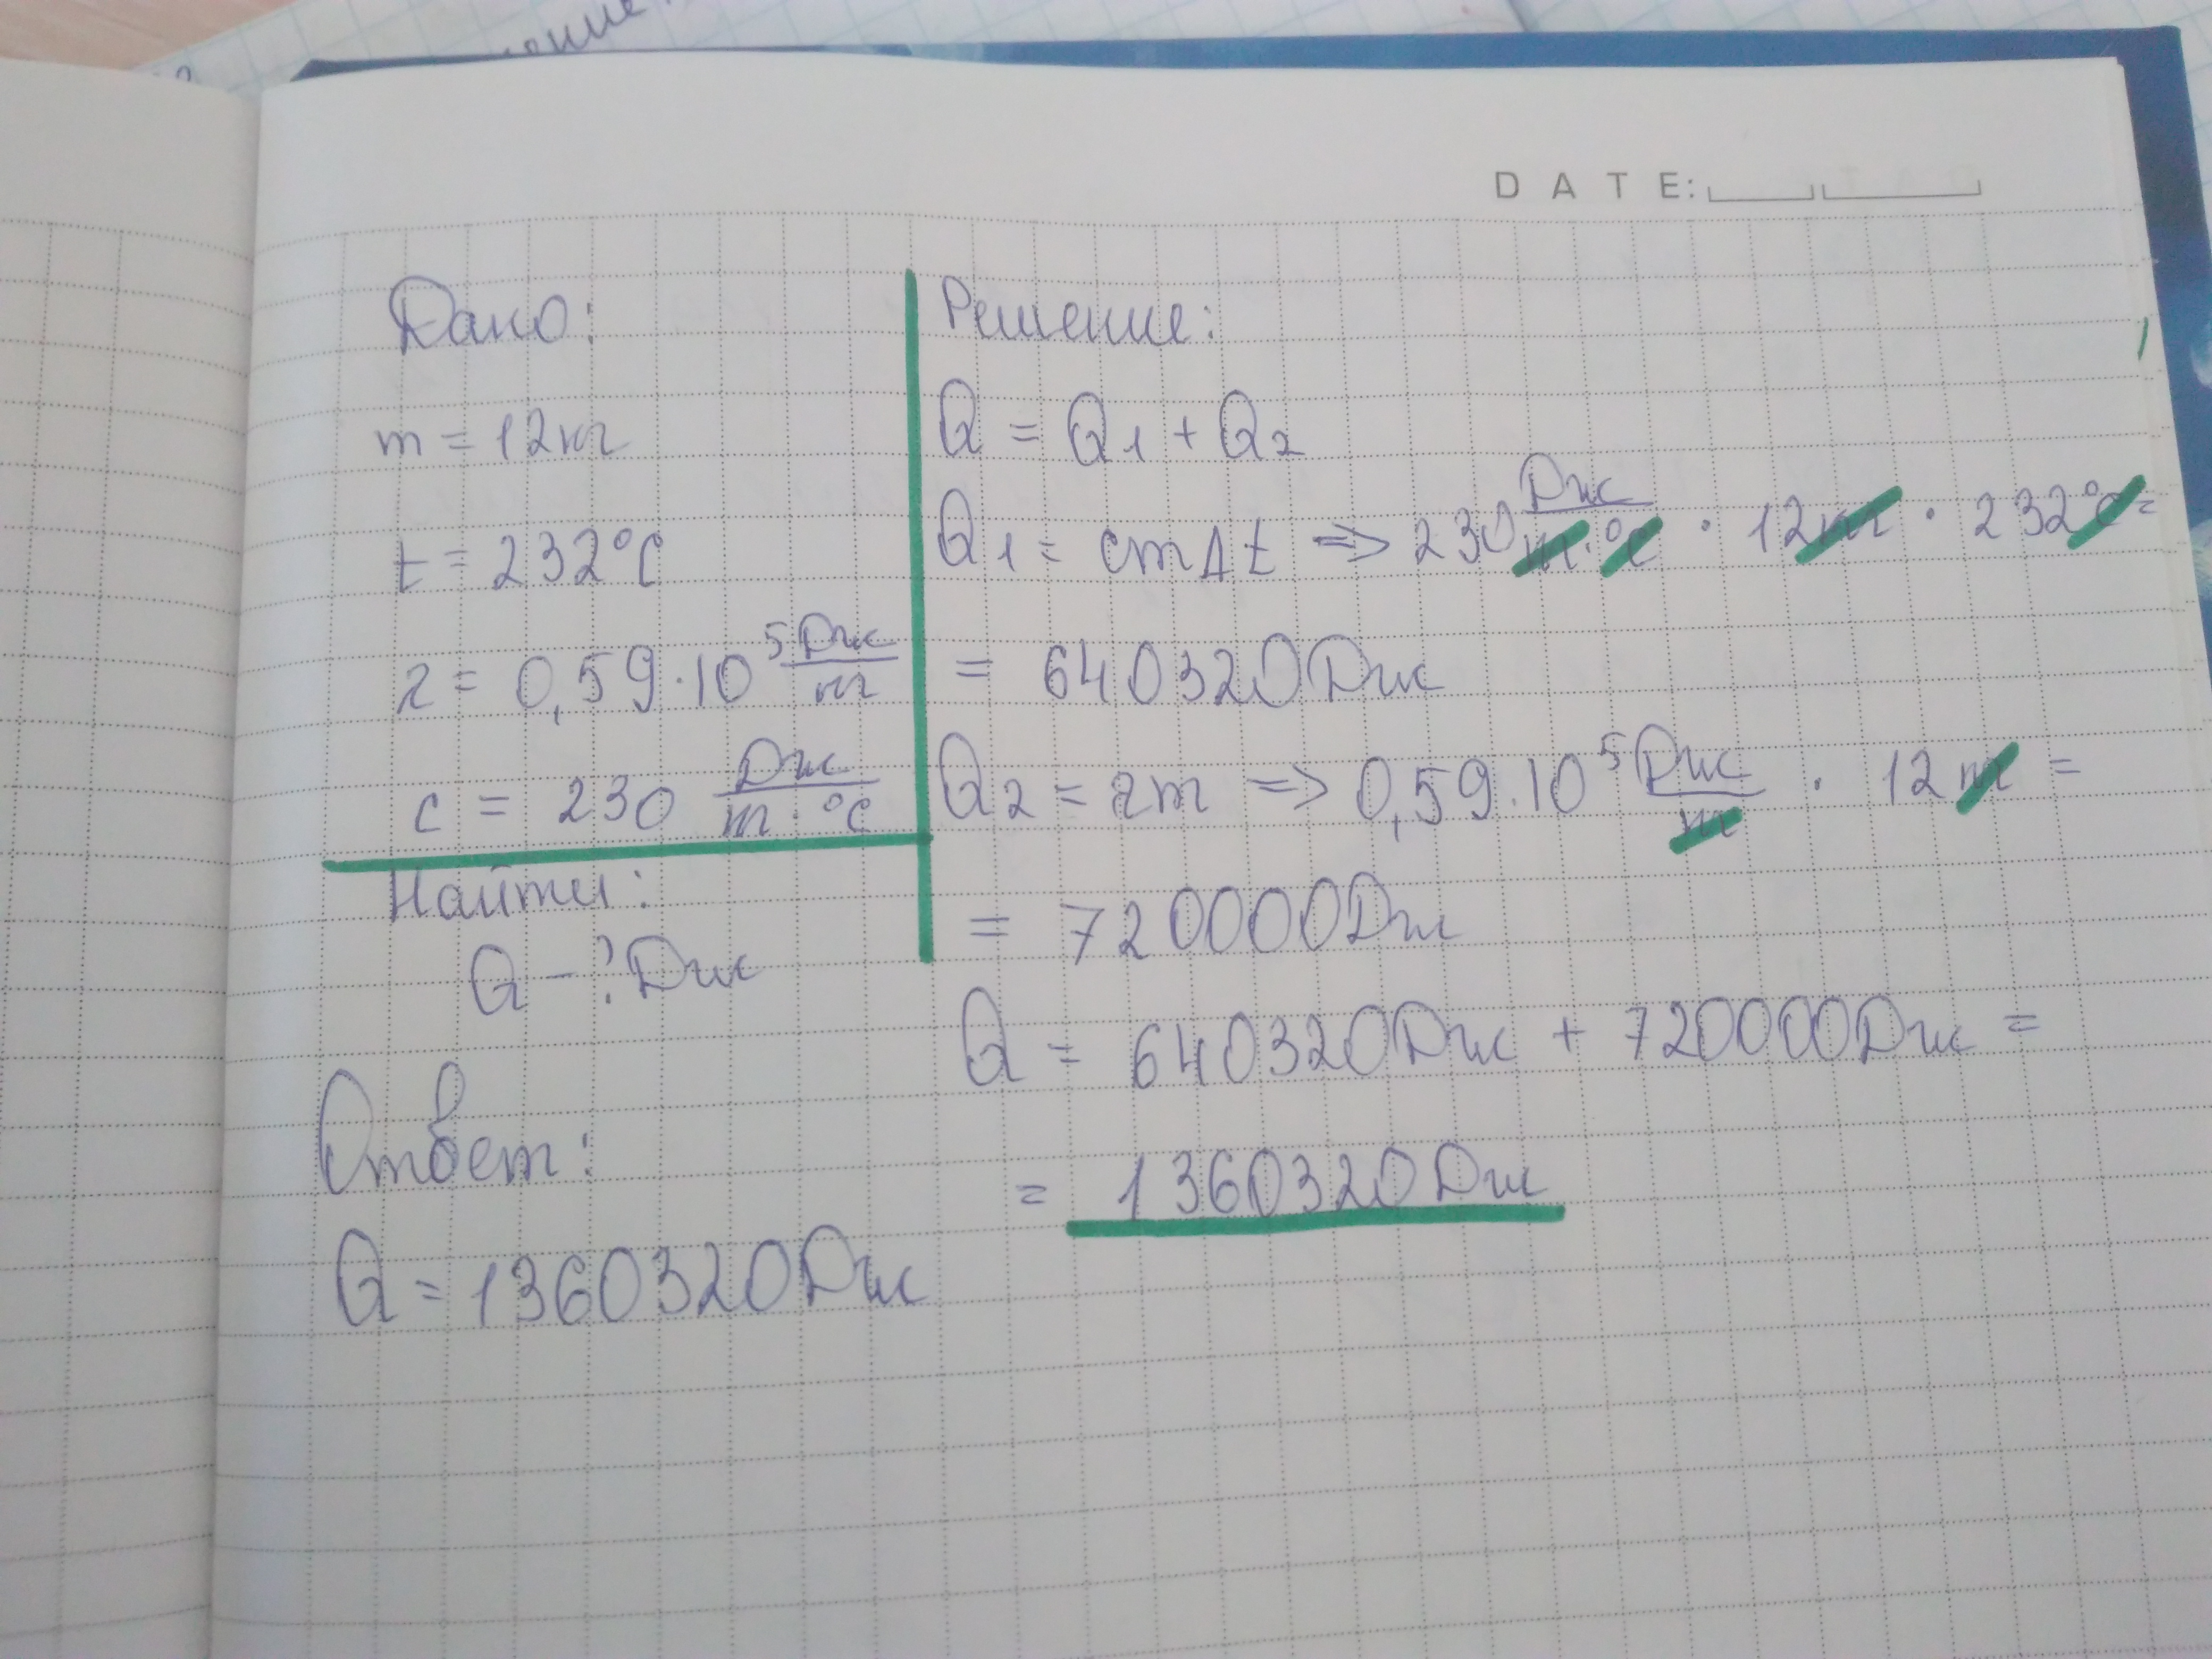 ение
DATE:
Дано:
m = 12кг
t = 232°C
λ = 0,59·10⁵ Дж/кг
c = 230 Дж/кг·°C
Найти:
Q – ? Дж
Решение:
Q = Q₁ + Q₂
Q₁ = cmΔt => 230 Дж/кг·°C · 12кг · 232°C =
= 640320Дж
Q₂ = λm => 0,59·10⁵ Дж/кг · 12кг =
= 720000Дж
Q = 640320Дж + 720000Дж =
= 1360320Дж
Ответ:
Q = 1360320Дж